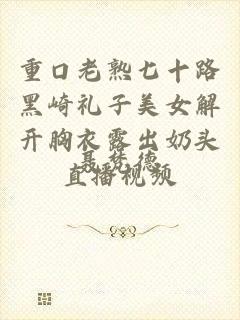 重口老熟七十路
黑崎礼子美女解
开胸衣露出奶头
直播视频
聂梵德